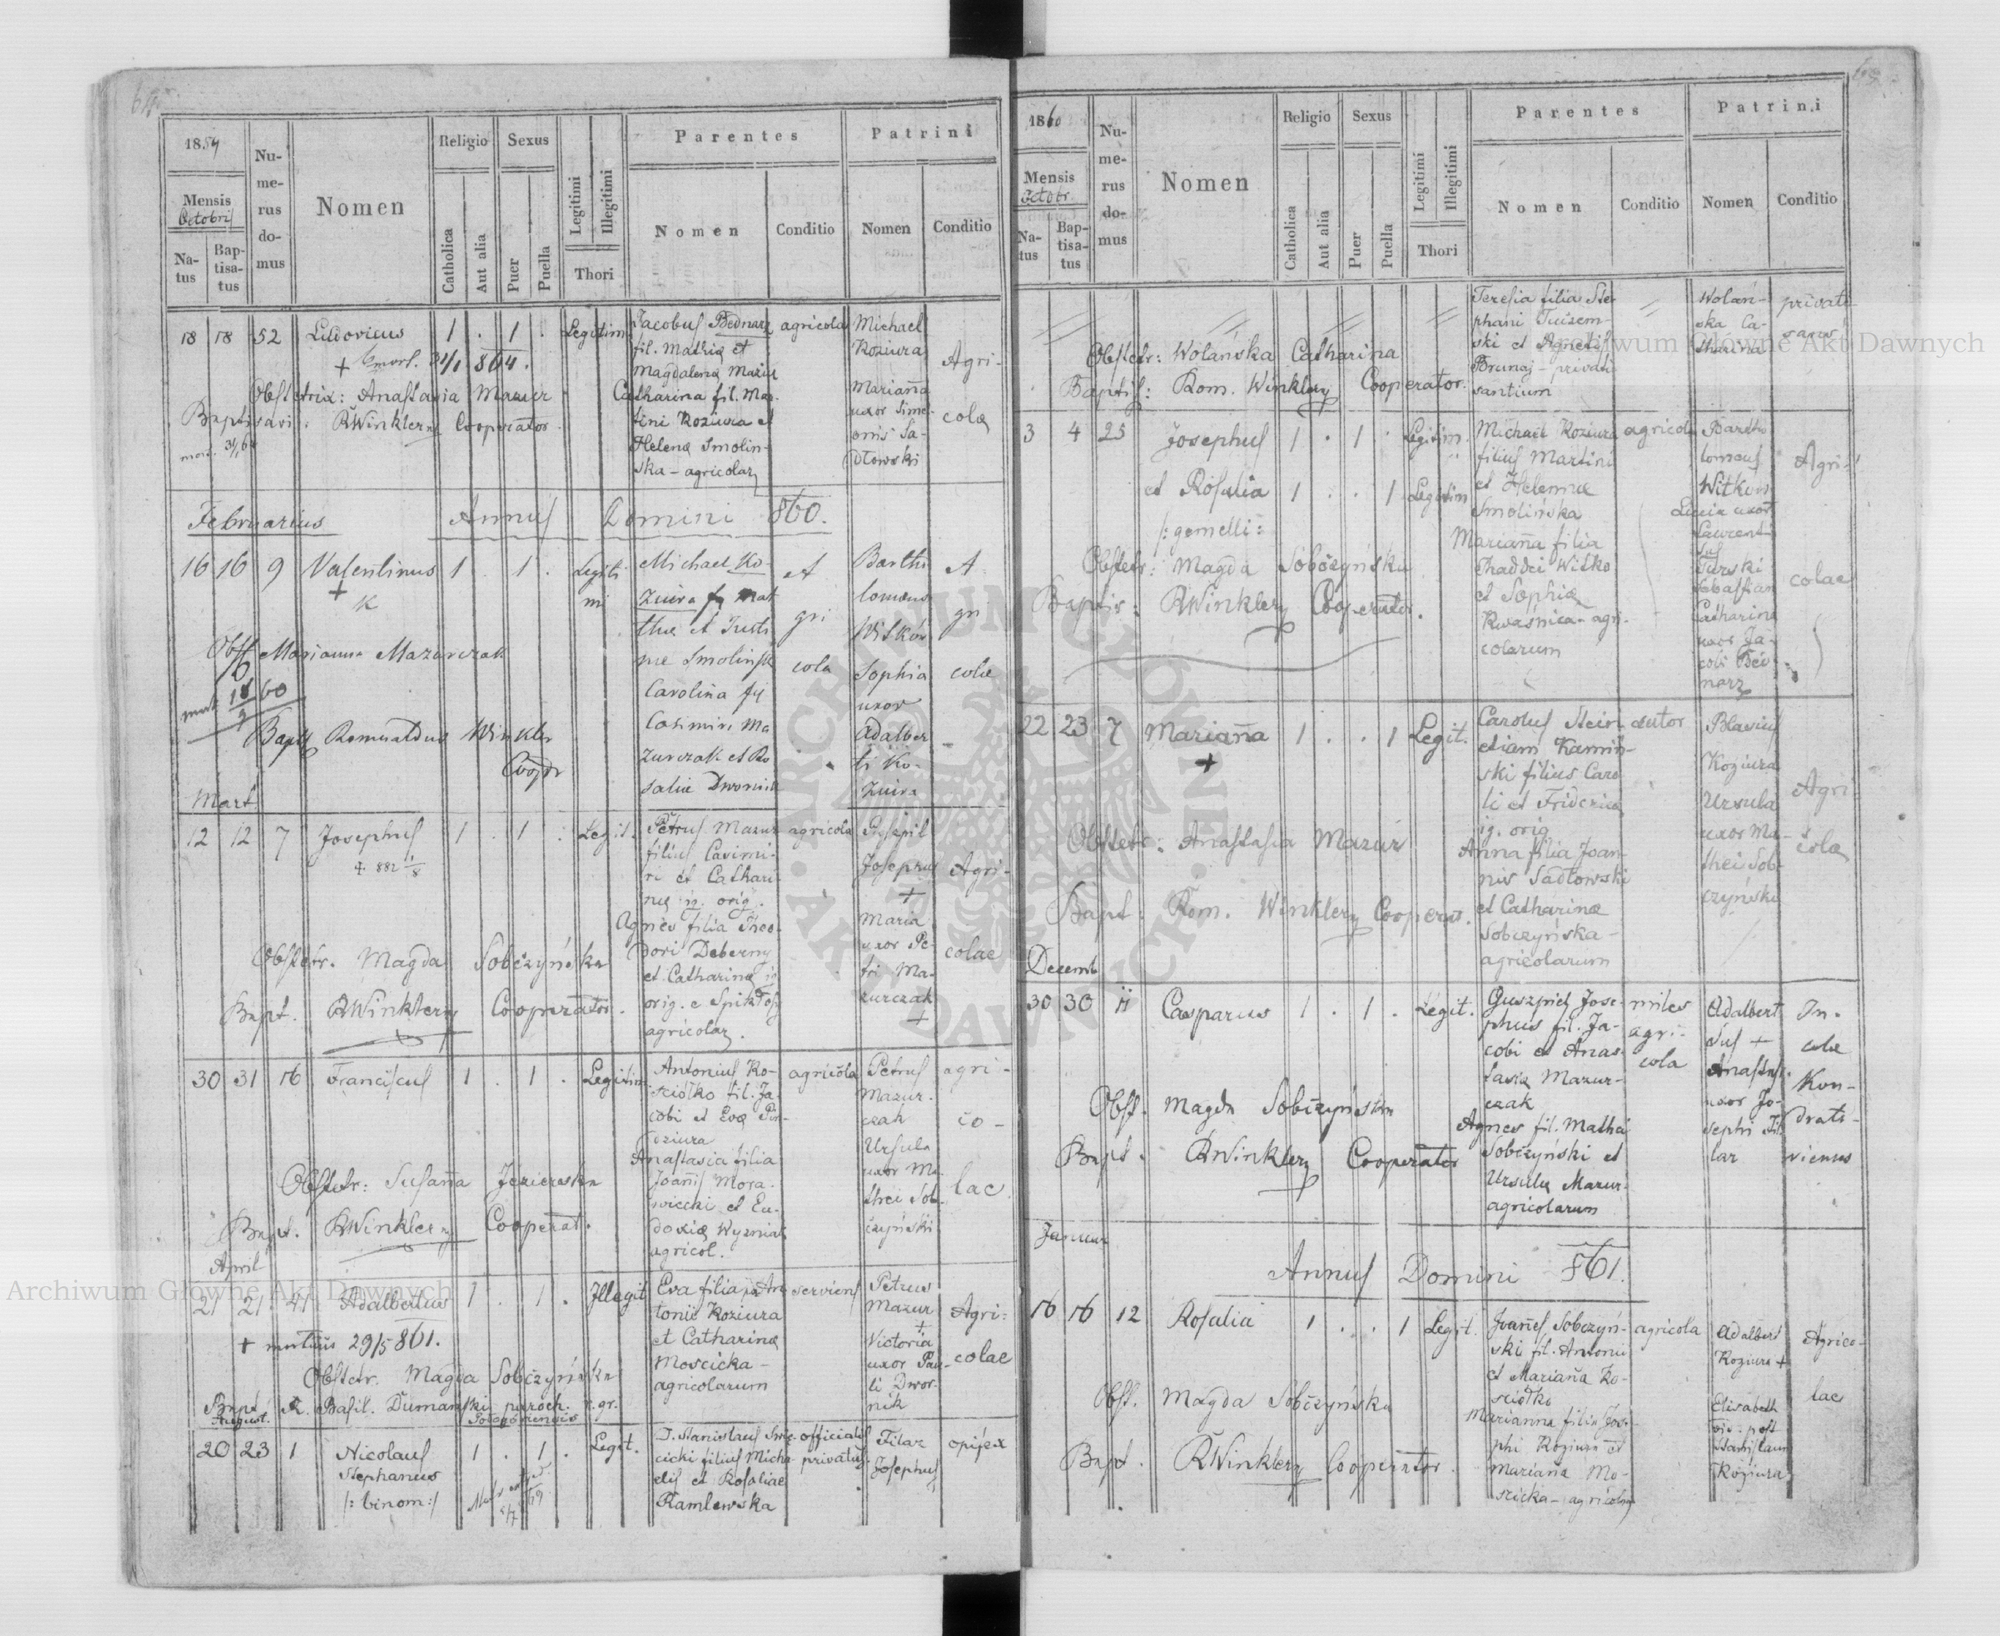 64
1859
Mensis
Octobris
Natus
Baptisatus
Numerus domus
Nomen
Religio
Catholica
Aut alia
Sexus
Puer
Puella
Legitimi
Illegitimi
Thori
Parentes
Nomen
Conditio
Patrini
Nomen
Conditio
18 18 52 Ludovicus 1 . 1 . Legitim
+ 864.
Obstetrix: Anastasia Mazur
Baptisavi: RWinklerz Cooperator.
Jacobus Bednarz
fil. Mathiæ et
Magdalena Mazur
Catharina fil. Mar-
tini Koziura et
Helenæ Smolin-
ska - agricolar
agricola
Michael
Koziura
Marianna
uxor Simo-
onis Sa-
dłowski
Agri-
colæ
Februarius Annus Domini 860.
16 16 9 Valentinus 1 . 1 . Legiti
mi
+
Obst Marianna Mazurczak
mort 18/9 60
Bapt Romualdus Winkler
Coopr
Michael Ko-
ziura
thæ et Justi
næ Smolińsk
Carolina fil
Casimiri Ma
zurczak et Ro
saliæ Dwornik
A
gri
cola
Barthi
lomæus
Witkow
Sophia
uxor
Adalber
ti Ko-
ziura
A
gri
colæ
Mart
12 12 7 Josephus 1 . 1 . Legit.
+ 882 1/8
Obstetr. Magda Sobczyńska
Bapt. RWinklerz Cooperator.
Petrus Mazur
filius Casimi-
ri et Cathari-
næ ig. orig.
Agnes filia Theo-
dori Deberny
et Catharinæ ig
orig. e Spikłosy
agricolar.
agricola
Josephus
+
Maria
uxor Pe-
tri Ma-
zurczak
+
Agri-
colae
30 31 16 Franciscus 1 . 1 . Legitim
Obstetr: Susanna Jezierska
Bapt. RWinklerz Cooperat.
Antonius Ko-
sciołko fil. Ja-
cobi et Evæ
Koziura
Anastasia filia
Joanis Mora-
wiecki et Eu-
doxiæ Wyzniak
agricol.
agricola
Petrus
Mazur-
czak
Ursula
uxor Ma-
thei Sob-
czyński
agri-
co-
lae
April
21 21 41 Adalbertus 1 . 1 . Illegit
+ mortuus 29/5 861.
Obstetr. Magda Sobczyńska
Bapt R. Basil. Dumański paroch. r. gr.
Eva filia An
tonii Koziura
et Catharinæ
Moscicka -
agricolarum
serviens
Petrus
Mazur
+
Victoria
uxor Pau-
li Dwor-
nik
Agri-
colae
August.
20 23 1 Nicolaus 1 . 1 . Legit.
Stephanus
/: binom:/
D. Stanislaus
cicki filius Micha-
elis et Rosaliae
Ramlewska
officialis
privatus
Filar
Josephus
opifex
65
1860
Mensis
Octobr.
Natus
Baptisatus
Numerus domus
Nomen
Religio
Catholica
Aut alia
Sexus
Puer
Puella
Legitimi
Illegitimi
Thori
Parentes
Nomen
Conditio
Patrini
Nomen
Conditio
Obstetr: Wolańska Catharina
Baptis: Rom. Winklerz Cooperator.
Teresia filia Ste-
phani Tuizem-
ski et Agnetis
Brunaj - privati
santium
Wolań-
ska Ca-
tharina
privati-
sans
3 4 25 Josephus 1 . 1 . Legitim.
et Rosalia 1 . . 1 Legitim
/: gemelli :
Obstetr: Magda Sobczyńska
Baptis: RWinklerz Cooperator.
Michael Koziura
filius Martini
et Helennæ
Smolińska
Marianna filia
Thaddei Witko
et Sophiæ
Kwaśnica - agri-
colarum
agricola
Bartho
lomeus
Witkow
Lucia uxor
Laurenti
Turski
Sebastian
Catharina
uxor Ja-
cobi Bed
narz
Agri-
colae
22 23 7 Marianna 1 . . 1 Legit.
+
Obstetr: Anastasia Mazur
Bapt. Rom. Winklerz Cooperat.
Carolus Stein
etiam Kamiń-
ski filius Caro
li et Friderica
ig. orig
Anna filia Joan-
nis Sadłowski
et Catharinæ
Sobczyńska -
agricolarum
sutor
Blasius
Koziura
Ursula
uxor Ma-
thei Sob-
czyńsko
Agri
colæ
Decemb
30 30 11 Casparus 1 . 1 . Legit.
Obst. Magda Sobczyńska
Bapt. RWinklerz Cooperator
Guszpich Jose-
phus fil. Ja-
cobi et Anas-
tasiæ Mazur-
czak
Agnes fil. Mathei
Sobczyński et
Ursulæ Mazur-
agricolarum
miles
agri-
cola
Adalbert
us +
Anastas.
uxor Jo-
sephi Fi-
lar
In-
colæ
Kon-
drati-
vienses
Januar
Annus Domini 861.
16 16 12 Rosalia 1 . . 1 Legit.
Obst. Magda Sobczyńska
Bapt. RWinklerz Cooperator.
Joannes Sobczyń-
ski fil. Antonii
et Marianna Ko-
sciołko
Marianna filia Jose-
phi Koziura et
Marianna Mo-
scicka - agricolar
agricola
Adalbert
Koziura +
Elisabeth
post
Stanislaum
Koziura
Agrico-
lae
Archiwum Główne Akt Dawnych
Archiwum Główne Akt Dawnych
ARCHIWUM GŁÓWNE AKT DAWNYCH